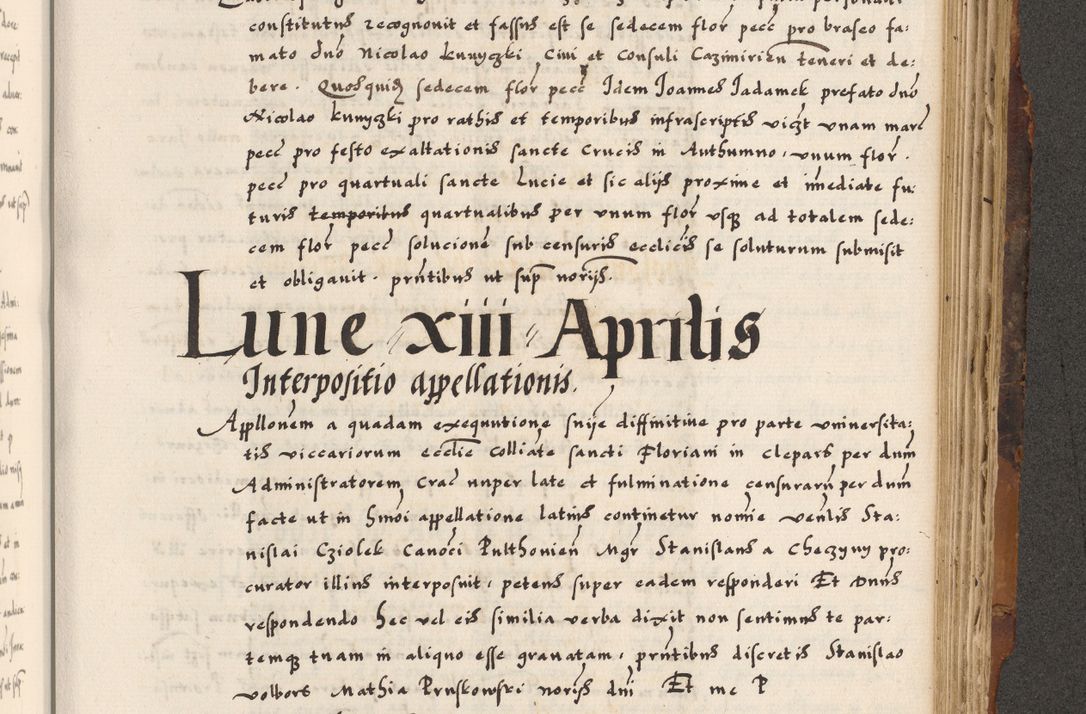 constitutus recognovit et fassus est se sedecem flor pecc pro braseo fa:
mato dno Nicolao kunyczki Civi et Consuli Cazimirien teneri et de:
bere . Quosquidem sedecem flor pecc Idem Joannes Jadamek prefato dno
Nicolao kunyczki pro rathis et temporibus infrascriptis viczt unam marc
pecc pro festo exaltationis sancte Crucis in Authumno, unum flor .
pecc pro quartuali sancte Lucie et sic aliis proxime et imediate fu:
turis temporibus quartualibus per unum flor usque ad totalem sede:
cem flor pecc solucione sub censuris ecclicis se soluturum submisit
et obligavit . prntibus ut sup norijs .
Lune xiii Aprilis
Interpositio appellationis.
Appllonem a quadam exequutione snije diffinitive pro parte universita:
tis viccariorum ecclie colliate sancti Floriani in clepars per dnm
Administratorem Crac nuper late et fulminatione censurarum per dnm
facte ut in hmoi appellatione latius continetur nomie venlis Sta:
nislai Cziolek Canoci Pulthovien Mgr Stanislaus a Checzyny pro:
curator illius interposuit, petens super eadem responderi Et Dnus
respondendo hec vel eis similia verba dixit non sentimus te par:
temque tuam in aliquo esse gravatam, prntibus discretis Stanislao
volbors Mathia Pruskowski norijs dni Et me P